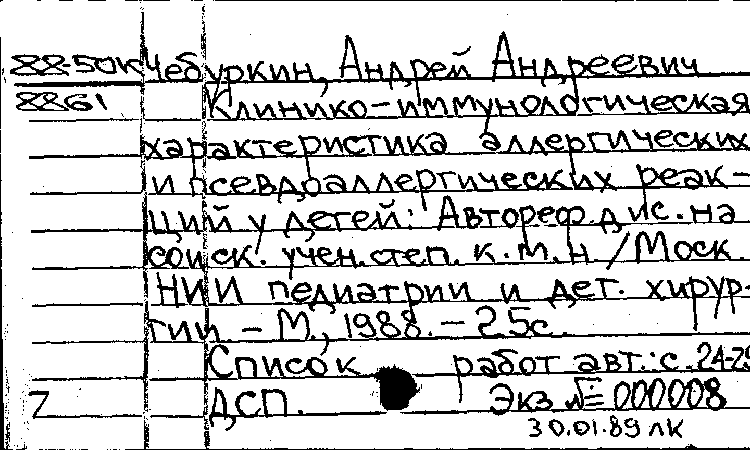 88-50к Чебуркин, Андрей Андреевич
8861 Клинико-иммунологическая
характеристика аллергических
и псевдоаллергических реак-
ций у детей: Автореф. дис. на
соиск. учен. степ. к.м.н / Моск.
НИИ педиатрии и дет. хирур-
гии. - М., 1988. - 25с.
Список работ авт.: с. 24-25
7 ДСП. Экз № 000008
30.01.89 ЛК